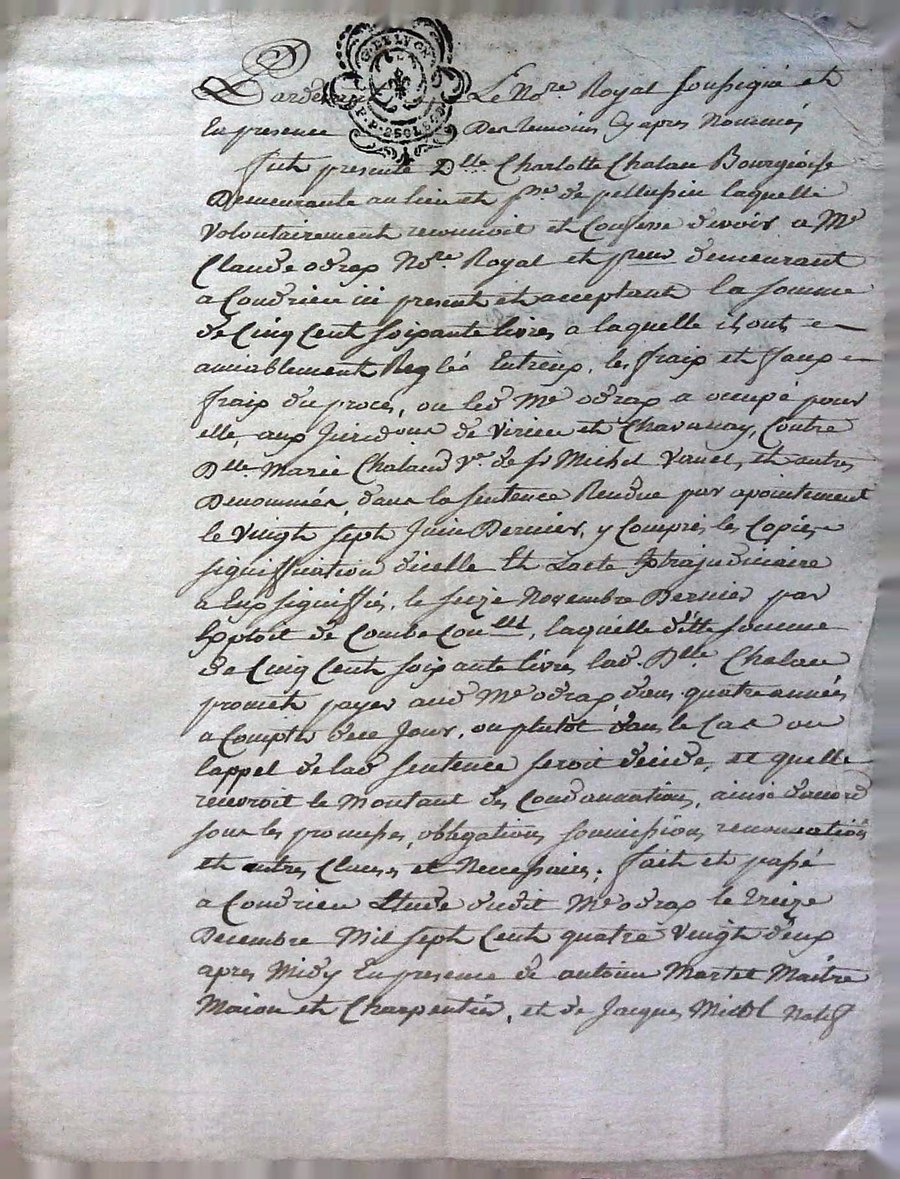 G. DE LYON
Pardevant Le No.re Royal soussigné et
En presence Des temoins Cy apres Nommés
Fut presente D.lle Charlotte Chalan Bourgioise
Demeurante au lieu et p.sse de pellussin laquelle
Volontairement reconnoit et Confesse devoir a M.e
Claude odrap No.re Royal et pcur demeurant
a Condrieu ici present et acceptant la somme
de Cinq Cent soixante livres a laquelle ils ont
amiablement Reglés Entreux, les fraix et faux
fraix du procès, ou led M.e odrap a occupé pour
elle aux Juridons de Virieu et Chavanay, Contre
D.lle Marie Chaland V.e de sr Michel Vanel, et autres
Denommés, dans la sentence Rendue par apointement
le Vingt sept Juin Dernier, y Compris les Copies
signiffication d'icelle Et Lacte Extrajudiciaire
a Eux signiffiés, le seize Novembre Dernier par
Exploit de Combe, laquelle ditte somme
de Cinq Cent soixante livres lad. D.lle Chalan
promet payer aud M.e odrap dans quatre années
a Compter de ce Jour, ou plutôt dans le Cas ou
lappel de lad sentence seroit decidé, et quelle
recevroit le Montant des Condamnations, ainsi daccord
sous les promesses, obligations soumissions, renonciations
et autres Clauses et Necessaires; fait et passé
a Condrieu Etude dudit M.e odrap le treize
Decembre Mil sept Cent quatre Vingt deux
apres Midy En presence de antoine Martet Maitre
Maçon et Charpentier, et de Jacques Mictol